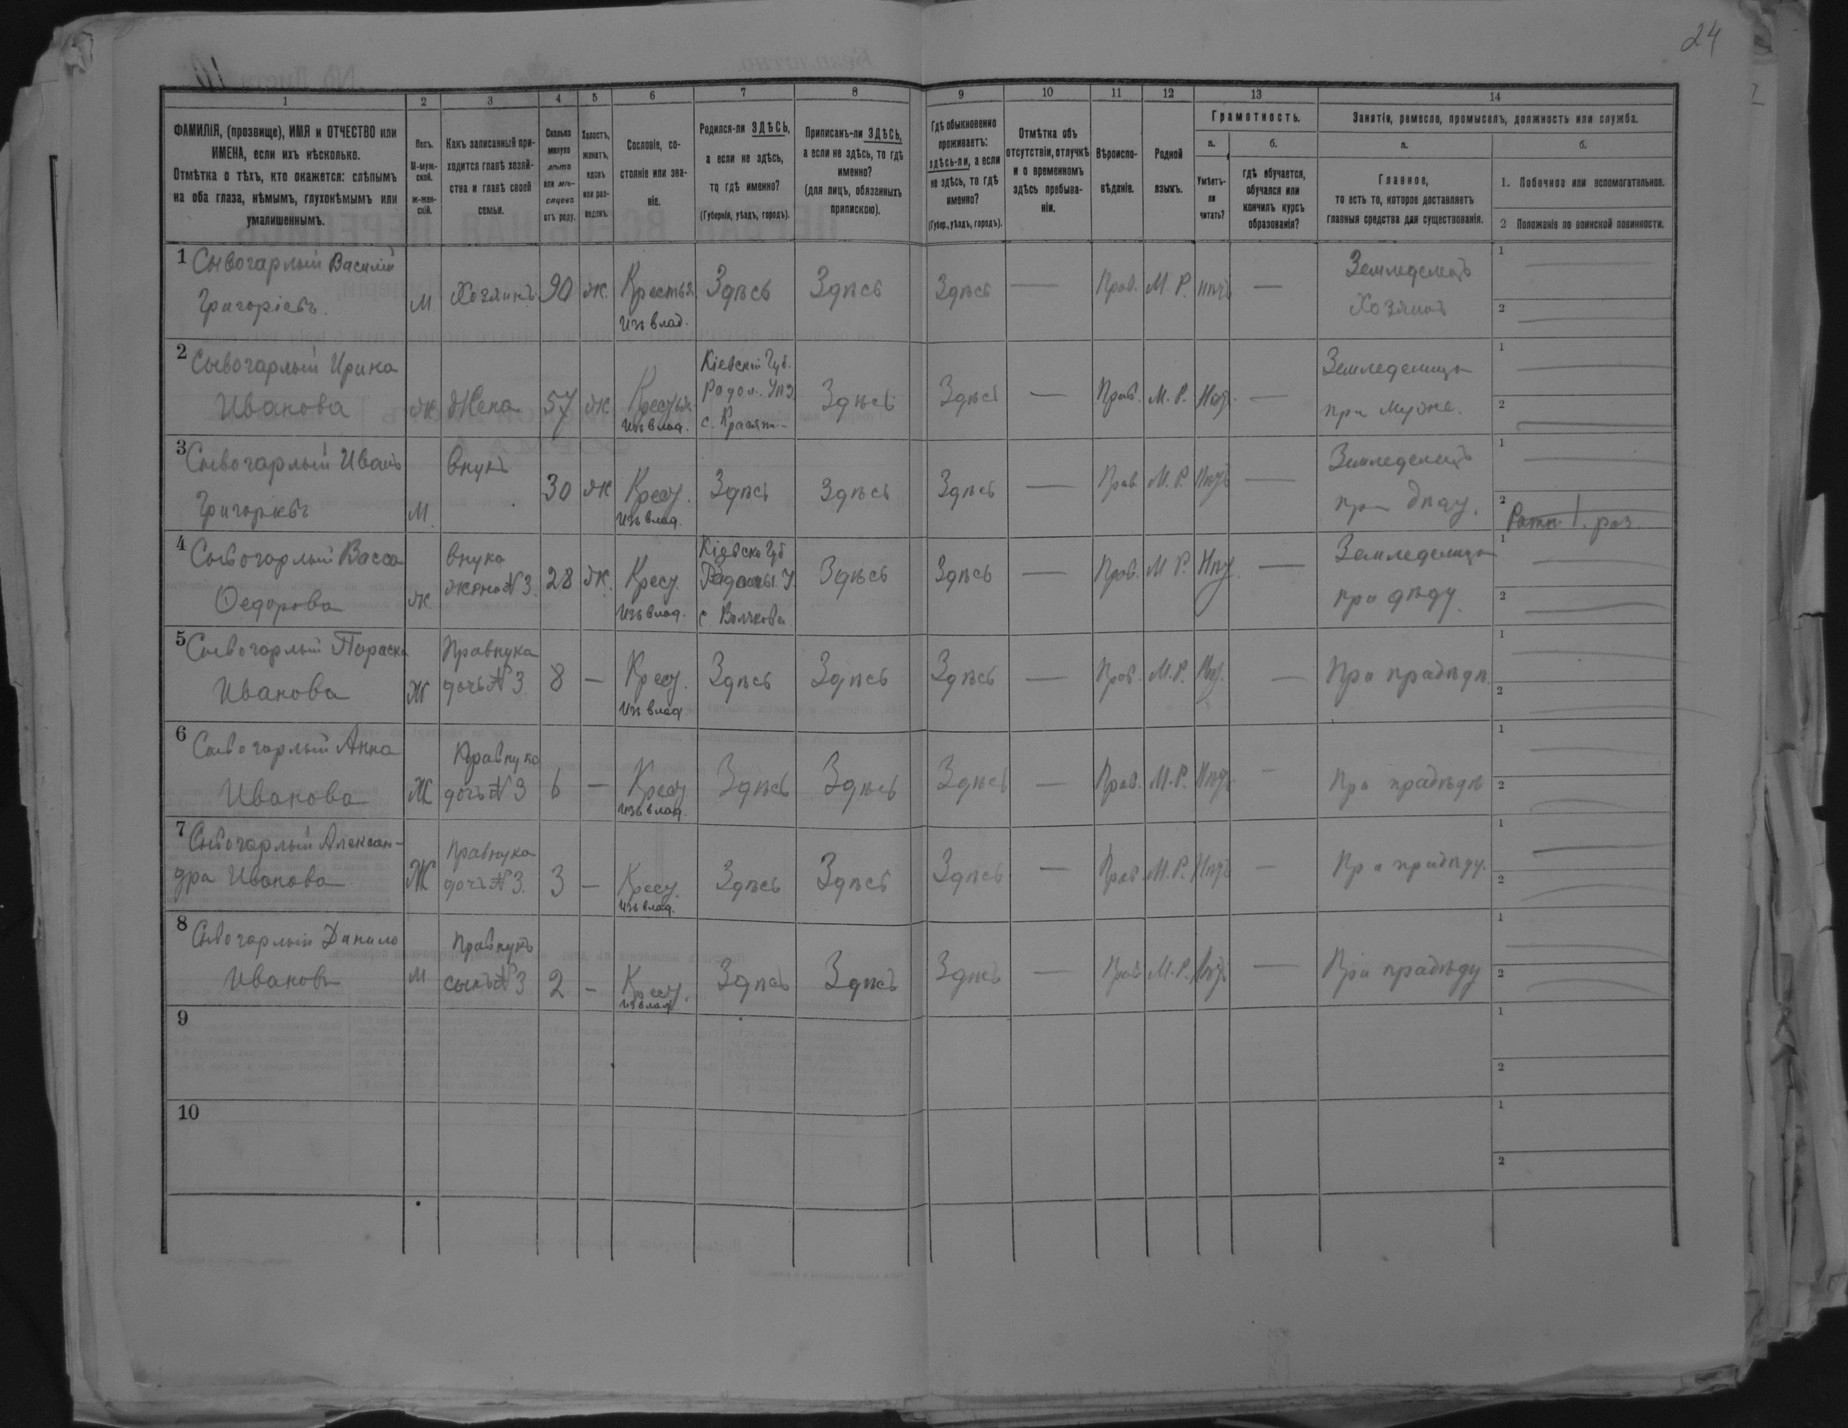 24
1 2 3 4 5 6 7 8 9 10 11 12 13 14
ФАМИЛІЯ, (прозвище), ИМЯ и ОТЧЕСТВО или ИМЕНА, если ихъ нѣсколько.
Отмѣтка о тѣхъ, кто окажется: слѣпымъ на оба глаза, нѣмымъ, глухонѣмымъ или умалишеннымъ.
Полъ.
М-муж-
ской.
ж-жен-
скій.
Какъ записанный при-
ходится главѣ хозяй-
ства и главѣ своей
семьи.
Сколько
минуло
лѣтъ
или мѣ-
сяцевъ
отъ роду.
Холостъ,
женатъ,
вдовъ
или раз-
веденъ.
Сословіе, со-
стояніе или зва-
ніе.
Родился-ли ЗДѢСЬ,
а если не здѣсь,
то гдѣ именно?
(Губернія, уѣздъ, городъ).
Приписанъ-ли ЗДѢСЬ,
а если не здѣсь, то гдѣ
именно?
(для лицъ, обязанныхъ
припискою).
Гдѣ обыкновенно
проживаетъ:
здѣсь-ли, а если
не здѣсь, то гдѣ
именно?
(Губер., уѣздъ, городъ).
Отмѣтка объ
отсутствіи, отлучкѣ
и о временномъ
здѣсь пребыва-
ніи.
Вѣроиспо-
вѣданіе.
Родной
языкъ.
Грамотность.
а.
Умѣетъ-
ли
читать?
б.
гдѣ обучается,
обучался или
кончилъ курсъ
образованія?
Занятіе, ремесло, промыселъ, должность или служба.
а.
Главное,
то есть то, которое доставляетъ
главныя средства для существованія.
б.
1. Побочное или вспомогательное.
2 Положеніе по воинской повинности.
1 Сывогарлый Василій
Григоріевъ.
М Хозяинъ 90 Ж. Крестья.
Изъ влад.
Здѣсь Здѣсь Здѣсь — Прав. М. Р. —
Земледелецъ
Хозяинъ
1
2
2 Сывогарлый Ирина
Иванова
Ж Жена 57 Ж
Изъ влад.
Кіевскій Губ.
Радом. Уѣз.
Здѣсь Здѣсь — Прав. М. Р. —
Земледелица
при муже.
1
2
3 Сывогарлый Иванъ
М. внукъ 30 Ж Крест.
Изъ влад.
Здѣсь Здѣсь Здѣсь — Прав. М. Р. —
Земледелецъ
при дѣду.
1
2 Ратн. 1. раз.
4 Сывогарлый Васса
Федорова
Ж внука
жена № 3. 28 Ж. Крест.
Изъ влад.
с. Волчкова
Здѣсь Здѣсь — Прав. М. Р. —
Земледелица
при дѣду.
1
2
5 Сывогарлый Параска
Иванова
Ж Правнука
дочь № 3 8 — Крест.
Изъ влад
Здѣсь Здѣсь Здѣсь — Прав. М. Р. —
При прадѣдѣ.
1
2
6 Сывогарлый Анна
Иванова
Ж Правнука
дочь № 3 6 — Крест
Изъ влад.
Здѣсь Здѣсь Здѣсь — Прав. М. Р. —
При прадѣдѣ
1
2
7 Сывогарлый Алексан-
дра Иванова
Ж Правнука
дочь № 3. 3 — Крест.
Изъ влад.
Здѣсь Здѣсь Здѣсь — Прав. М. Р. —
При прадѣду.
1
2
8 Сывогарлый Данило
Ивановъ
М Правнукъ
сынъ № 3 2 — Крест.
Изъ влад
Здѣсь Здѣсь Здѣсь — Прав М. Р. —
При прадѣду
1
2
9
1
2
10
1
2